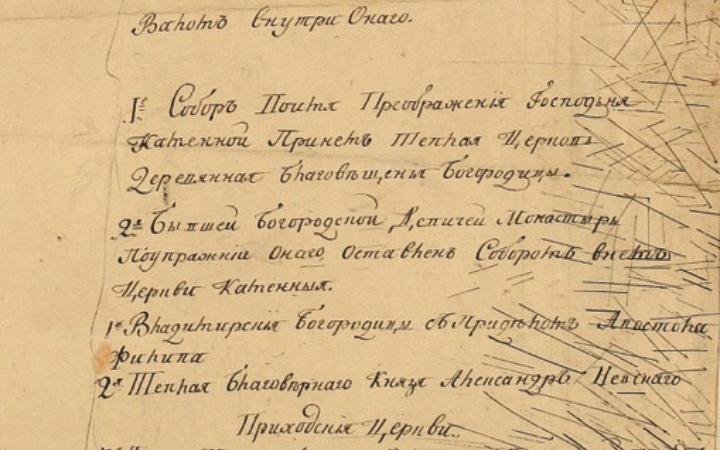 Валомъ внутри Онаго.
1е Соборъ Поимя Преображенiя Господьня
Каменной Принемъ Теплая Церковь
Деревянная Благовѣщенья Богородицы.
2е Бывшей Богородской Девичей Монастырь
Поупражнiи Онаго Оставленъ Соборомъ внемъ
Церкви Каменныя.
1е Владимирскiя Богородицы съ Придѣломъ Апостола
Филипа
2я Теплая Благовѣрнаго Князя Александръ Невскаго
Приходскiя Церкви.